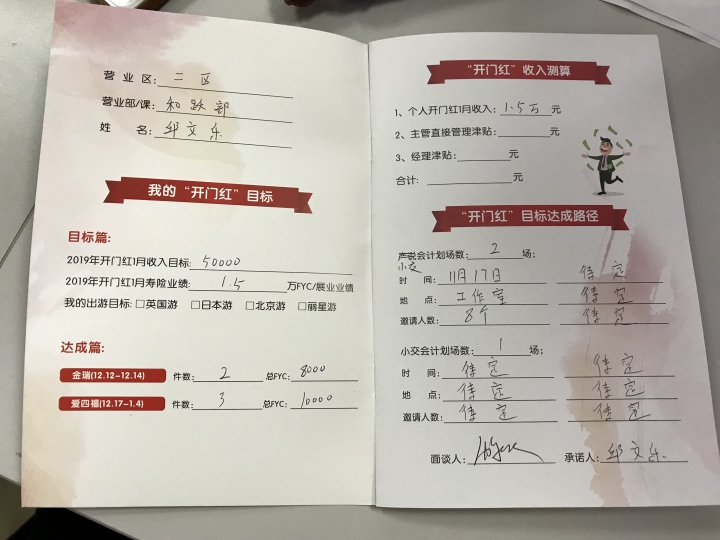 营 业 区: 二 区
营业部/课: 和跃部
姓 名: 邱文乐
我的“开门红”目标
目标篇:
2019年开门红1月收入目标: 50000
2019年开门红1月寿险业绩: 1.5 万FYC/展业业绩
我的出游目标: □英国游 □日本游 □北京游 □丽星游
达成篇:
金瑞(12.12-12.14) 件数: 2 总FYC: 8000
爱四福(12.17-1.4) 件数: 3 总FYC: 10000
“开门红”收入测算
1、个人开门红1月收入: 1.5万 元
2、主管直接管理津贴: 元
3、经理津贴: 元
合计: 元
“开门红”目标达成路径
产说会计划场数: 2 场;
小交
时 间: 11月17日 待定
地 点: 工作室 待定
邀请人数: 8个 待定
小交会计划场数: 1 场;
时 间: 待定 待定
地 点: 待定 待定
邀请人数: 待定 待定
面谈人: 承诺人: 邱文乐